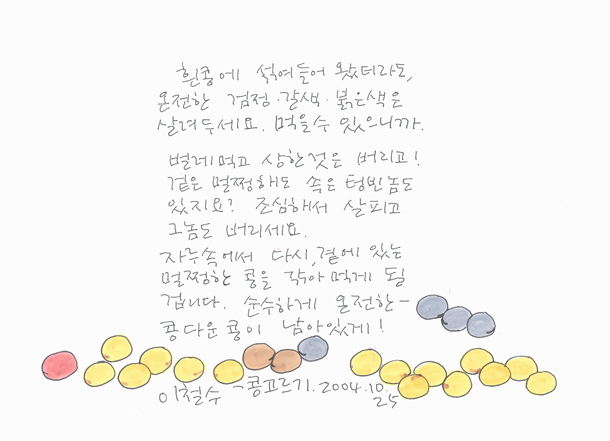 흰콩에 섞여들어 왔더라도,
온전한 검정·갈색·붉은색은
살려두세요. 먹을수 있으니까.
벌레먹고 상한것은 버리고!
겉은 멀쩡해도 속은 텅빈놈도
있지요? 조심해서 살피고
그놈도 버리세요.
자루속에서 다시, 곁에 있는
멀쩡한 콩을 갉아먹게 될
겁니다. 순수하게 온전한-
콩다운 콩이 남아있게!
이철수 -콩고르기. 2004.10.
25